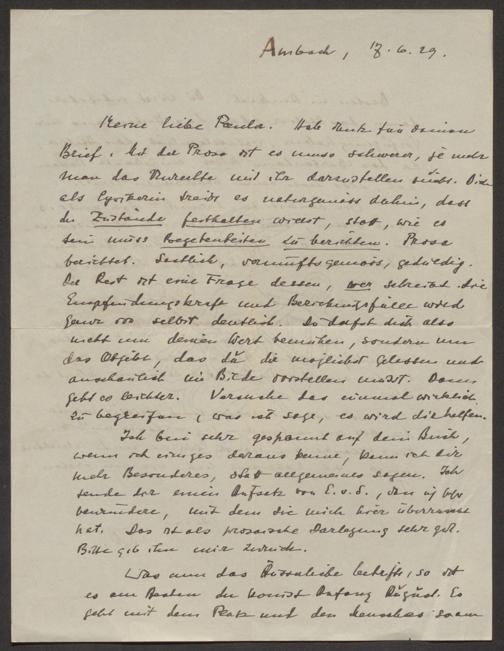 Ambach, 17. 6. 29.
Meine liebe Paula. Hab Dank für Deinen
Brief. Mit der Prosa ist es umso schwerer, je mehr
man das Gewollte mit ihr darzustellen sucht. Dich
als Lyrikerin treibt es naturgemäss dahin, dass
du Zustände festhalten willst, statt, wie es
sein muss Begebenheiten zu berichten. Prosa
berichtet. Sachlich, vernunftsgemäss, geduldig.
Der Rest ist eine Frage dessen, wer schreibt. Die
Empfindungskraft und Beziehungsfülle wird
ganz von selbst deutlich. Du darfst dich also
nicht um deinen Wert bemühen, sondern um
das Objekt, das du dir möglichst gelassen und
anschaulich im Bilde vorstellen musst. Dann
geht es leichter. Versuche das einmal wirklich
zu begreifen, was ich sage, es wird dir helfen.
Ich bin sehr gespannt auf dein Buch,
wenn ich einiges daraus kenne, kann ich dir
mehr Besonderes, statt allgemeines sagen. Ich
sende dir einen Aufsatz von E. v. S., den ich
bewundere, mit dem die mich hier überrascht
hat. Das ist als prosaische Darlegung sehr gut.
Bitte gib ihn mir zurück.
Was nun das Äusserliche betrifft, so ist
es am Besten du kommst Anfang August. Es
geht mit dem Platz und den Menschen so am